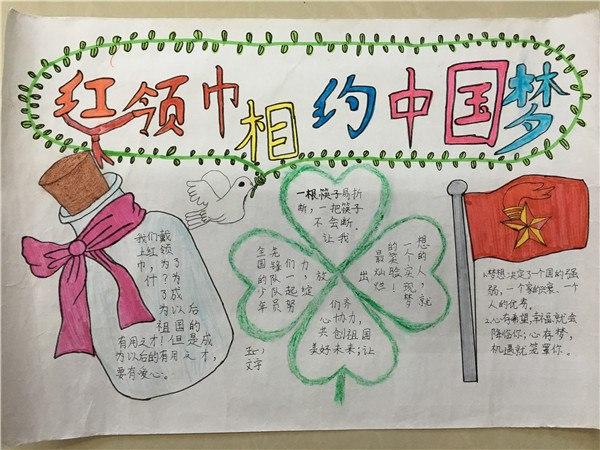 红领巾相约中国梦
我们戴
上红领
巾，为了
什？为
了成
为以后
祖国的
有用之才！但是成
为以后的有用之才，
要有爱心。
一根筷子易折
断，一把筷子
不会断。
让我
们齐
心协力，
共创祖国
美好未来；让
全国的少年
先锋队队员
们一起努
力，绽
放
出
最灿烂
的笑脸！
一个实现梦
想的人，就
1.梦想决定了一个国的强
弱，一个家的兴衰、一个
人的优劣。
2.心有希望，幸福就会
降临你；心存梦，
机遇就笼罩你。
文字